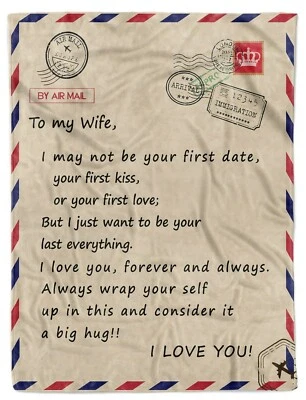 AIR MAIL
LONDON
ARRIVAL
12345
IMMIGRATION
BY AIR MAIL
To my Wife,
I may not be your first date,
your first kiss,
or your first love;
But I just want to be your
last everything.
I love you, forever and always.
Always wrap your self
up in this and consider it
a big hug!!
I LOVE YOU!